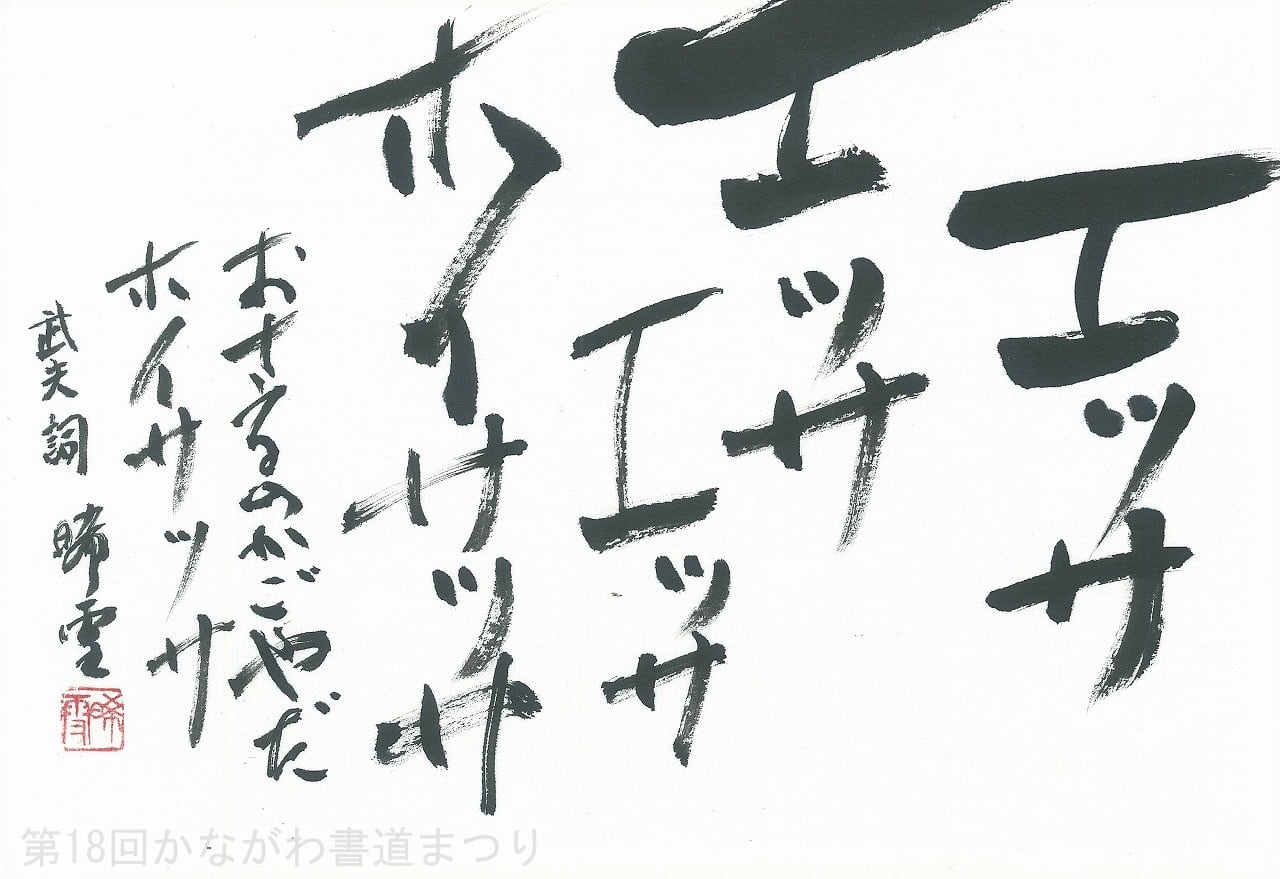 エッサ
エッサ
エッサ
ホイサッサ
おさるのかごやだ
ホイサッサ
武夫詞 晞雲
第18回かながわ書道まつり